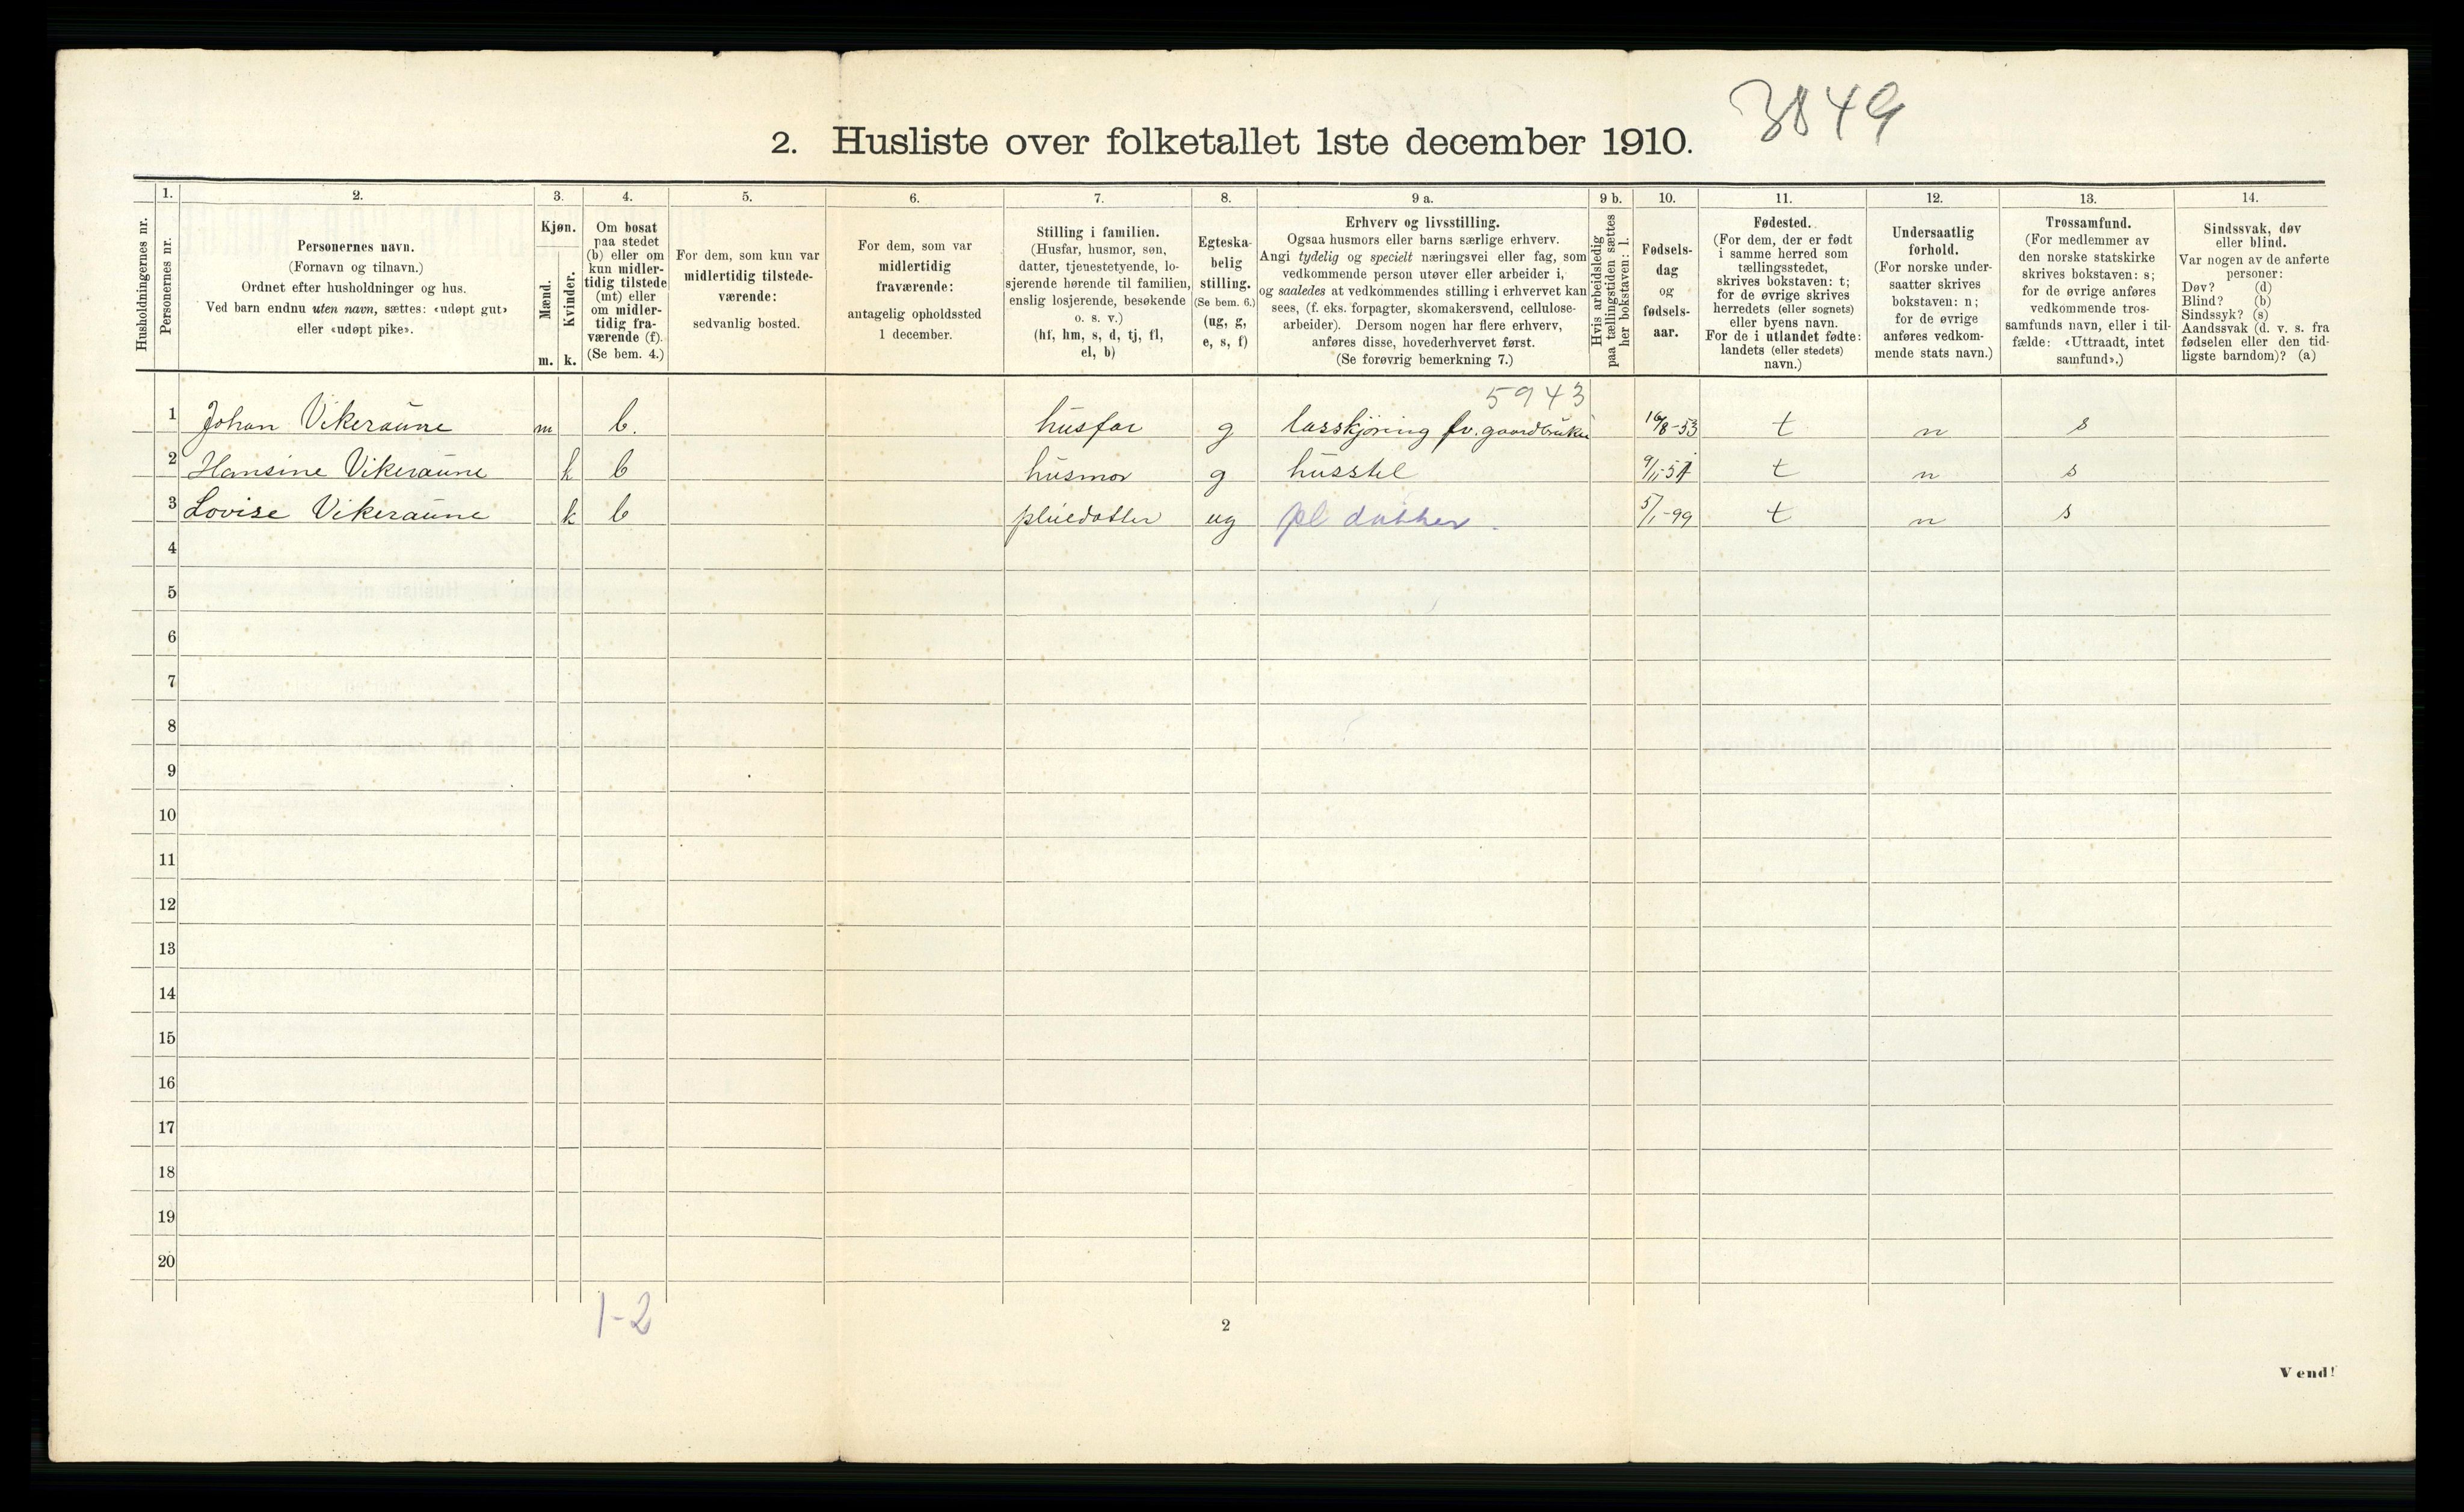 3849
2. Husliste over folketallet 1ste december 1910.
Husholdningernes nr.
1.
Personernes nr.
2.
Personernes navn.
(Fornavn og tilnavn.)
Ordnet efter husholdninger og hus.
Ved barn endnu uten navn, sættes: «udøpt gut»
eller «udøpt pike».
3.
Kjøn.
Mænd.
Kvinder.
m. k.
4.
Om bosat
paa stedet
(b) eller om
kun midler-
tidig tilstede
(mt) eller
om midler-
tidig fra-
værende (f).
(Se bem. 4.)
5.
For dem, som kun var
midlertidig tilstede-
værende:
sedvanlig bosted.
6.
For dem, som var
midlertidig
fraværende:
antagelig opholdssted
1 december.
7.
Stilling i familien.
(Husfar, husmor, søn,
datter, tjenestetyende, lo-
sjerende hørende til familien,
enslig losjerende, besøkende
o. s. v.)
(hf, hm, s, d, tj, fl,
el, b)
8.
Egteska-
belig
stilling.
(Se bem. 6.)
(ug, g,
e, s, f)
9 a.
Erhverv og livsstilling.
Ogsaa husmors eller barns særlige erhverv.
Angi tydelig og specielt næringsvei eller fag, som
vedkommende person utøver eller arbeider i,
og saaledes at vedkommendes stilling i erhvervet kan
sees, (f. eks. forpagter, skomakersvend, cellulose-
arbeider). Dersom nogen har flere erhverv,
anføres disse, hovederhvervet først.
(Se forøvrig bemerkning 7.)
9 b.
Hvis arbeidsledig
paa tællingstiden sættes
her bokstaven: l.
10.
Fødsels-
dag
og
fødsels-
aar.
11.
Fødested.
(For dem, der er født
i samme herred som
tællingsstedet,
skrives bokstaven: t;
for de øvrige skrives
herredets (eller sognets)
eller byens navn.
For de i utlandet fødte:
landets (eller stedets)
navn.)
12.
Undersaatlig
forhold.
(For norske under-
saatter skrives
bokstaven: n;
for de øvrige
anføres vedkom-
mende stats navn.)
13.
Trossamfund.
(For medlemmer av
den norske statskirke
skrives bokstaven: s;
for de øvrige anføres
vedkommende tros-
samfunds navn, eller i til-
fælde: «Uttraadt, intet
samfund».)
14.
Sindssvak, døv
eller blind.
Var nogen av de anførte
personer:
Døv? (d)
Blind? (b)
Sindssyk? (s)
Aandssvak (d. v. s. fra
fødselen eller den tid-
ligste barndom)? (a)
5943
1 Johan Vikeraune m b. husfar g lasskjøring fv. gaardbruker 16/8-53 t n s
2 Hansine Vikeraune k b husmor g husstel t n s
3 Lovise Vikeraune k b pleiedatter ug pl datter. 5/1-99 t n s
4
5
6
7
8
9
10
11
12
13
14
15
16
17
18
19
20
1-2
2
Vend!